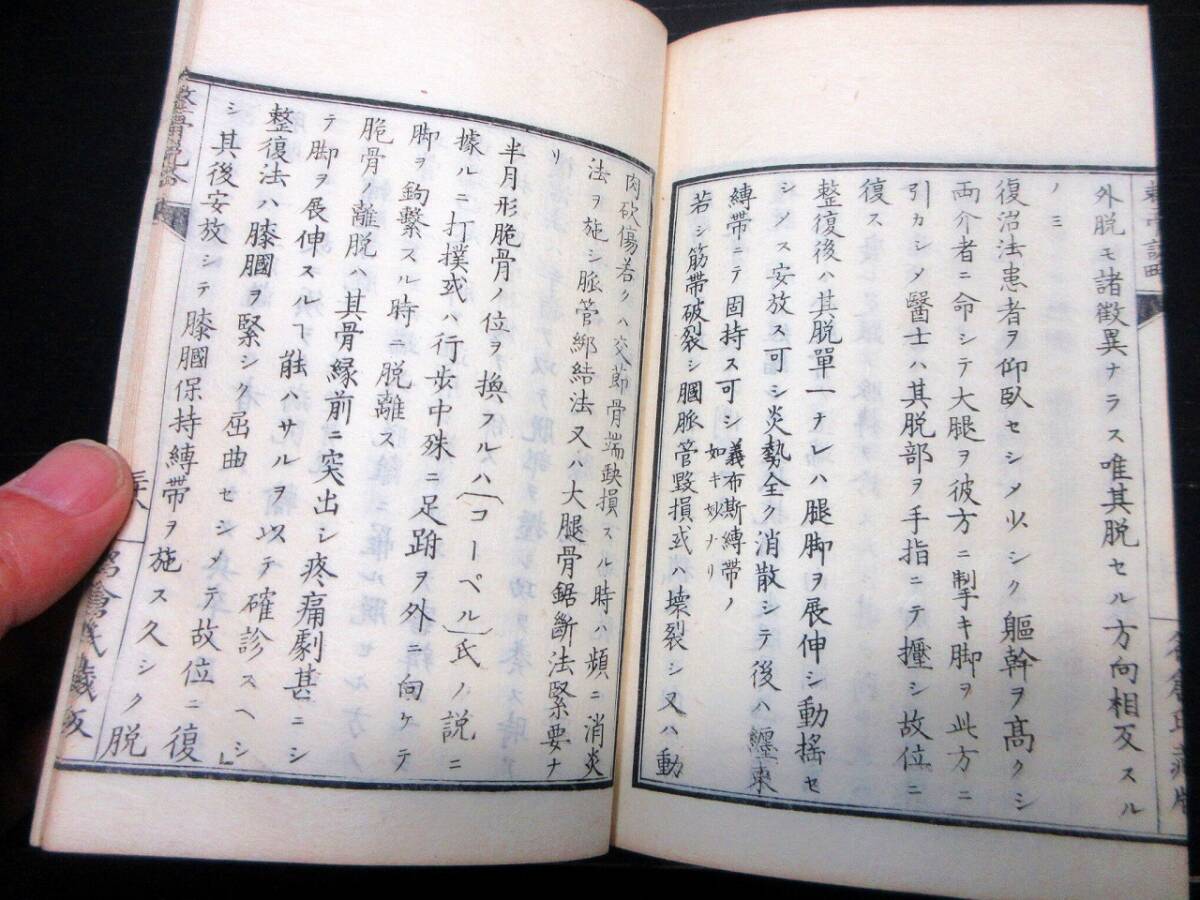 外脱モ諸徴異ナラス唯其脱セル方向相反スル
ノミ
復治法患者ヲ仰臥セシメ少シク軀幹ヲ高クシ
両介者ニ命シテ大腿ヲ彼方ニ掣キ脚ヲ此方ニ
引カシメ醫士ハ其脱部ヲ手指ニテ壓シ故位ニ
復ス
整復後ハ其脱單一ナレハ腿脚ヲ展伸シ動揺セ
シメス安放ス可シ炎勢全ク消散シテ後ハ纏束
縛帶ニテ固持ス可シ義布斯縛帶ノ如キ妙ナリ
若シ筋帶破裂シ膕脈管毀損或ハ壊裂シ又ハ動
肉砍傷若クハ交節骨端缺損スル時ハ頻ニ消炎
法ヲ施シ脈管綁結法又ハ大腿骨鋸斷法緊要ナ
リ
半月形脆骨ノ位ヲ換スルハ〔コーペル〕氏ノ説ニ
據ルニ打撲或ハ行歩中殊ニ足跗ヲ外ニ向ケテ
脚ヲ鉤繫スル時ニ脱離ス
脆骨ノ離脱ハ其骨縁前ニ突出シ疼痛劇甚ニシ
テ脚ヲ展伸スルヿ能ハサルヲ以テ確診スヘシ
整復法ハ膝膕ヲ緊シク屈曲セシメテ故位ニ復
シ其後安放シテ膝膕保持縛帶ヲ施ス久シク脱
整骨説畧
氏蔵版